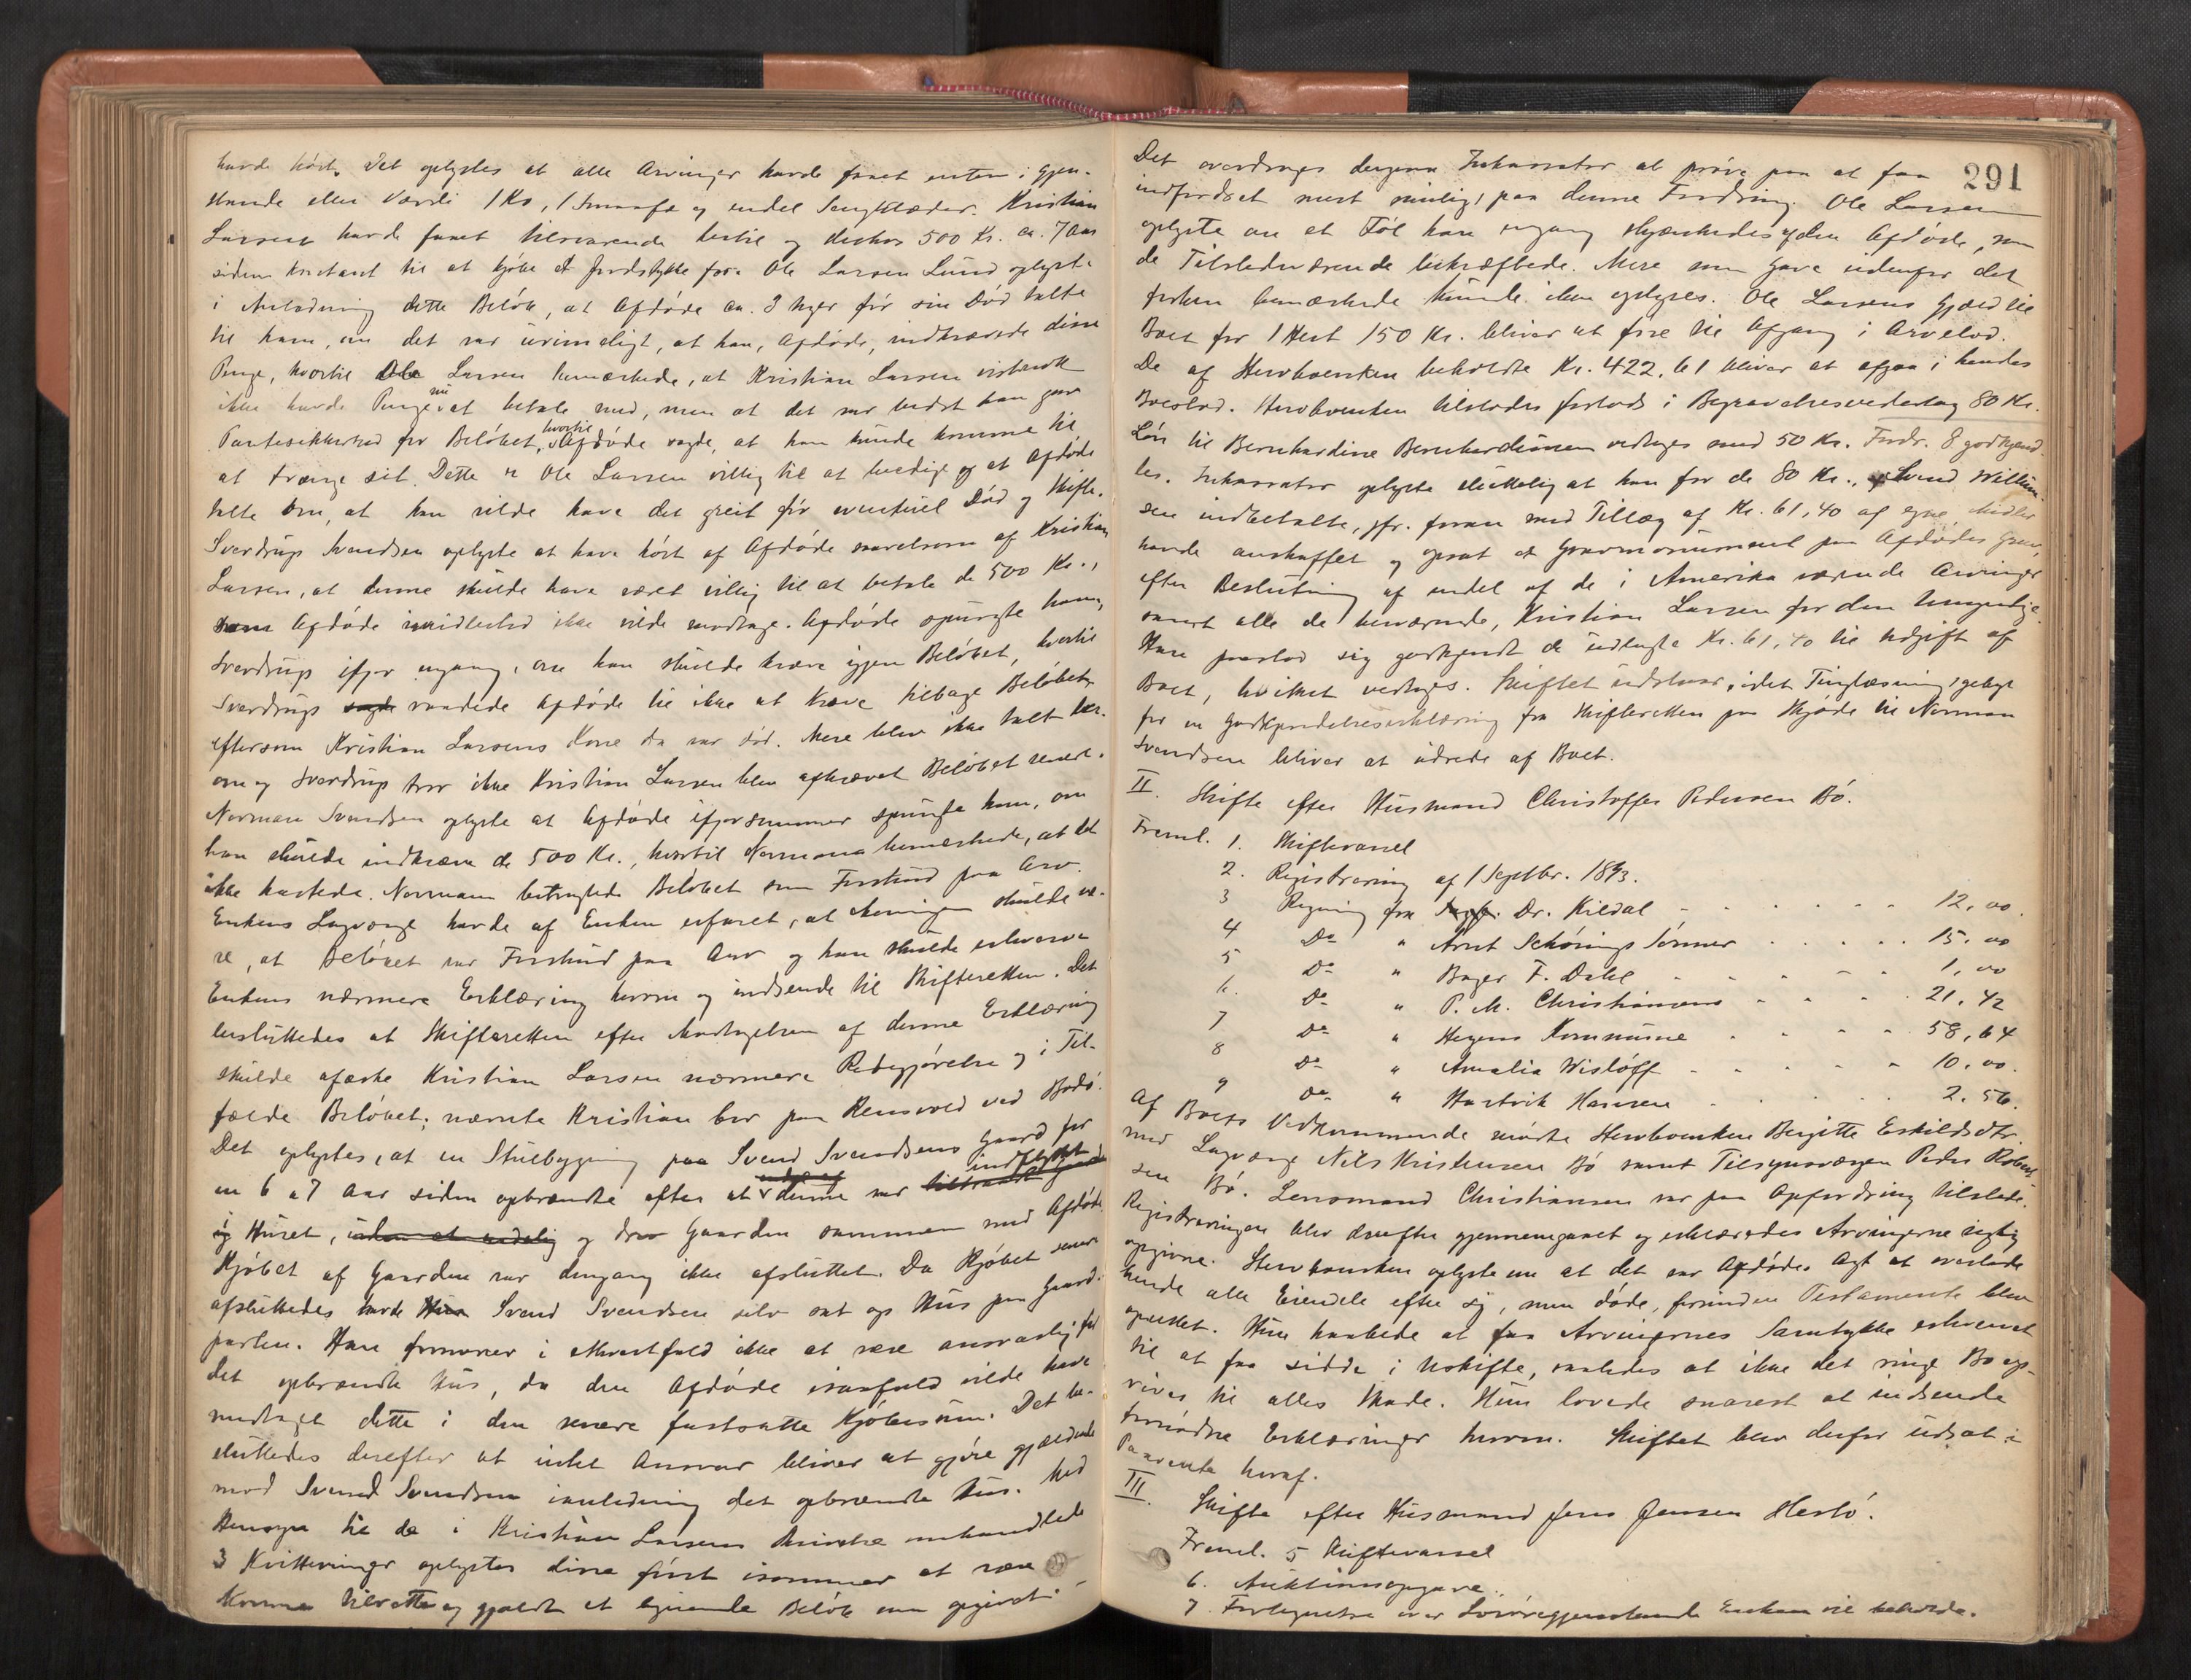 havde hørt. Det oplystes at alle Arvinger havde faaet enten i Gjen-
stande eller Værdi 1 Ko, 1 Smaafæ og endel Sengklæder. Kristian
Larsen havde faaet tilsvarende hertil og desuden 500 Kr. ca. 7 Aar
siden kontant til at kjøbe et Jordstykke for. Ole Larsen Lund oplyste
i Anledning dette Beløb, at Afdøde ca. 3 Uger før sin Død talte
til ham, om det var urimeligt, at han, Afdøde, indkrævede disse
Penge, hvortil Ole Larsen bemærkede, at Kristian Larsen vistnok
ikke havde Penge nu at betale med, men at det var bedst han gav
Pantesikkerhed for Beløbet, hvortil Afdøde sagde, at han kunde komme til
at trænge sit. Dette er Ole Larsen villig til at beedige og at Afdøde
talte om, at han vilde have det greit før eventuel Død og Skifte.
Sverdrup Svendsen oplyste at have hørt af Afdøde saavelsom af Kristian
Larsen, at denne skulde have været villig til at betale de 500 Kr.,
som Afdøde imidlertid ikke vilde modtage. Afdøde spurgte ham,
Sverdrup ifjor engang, om han skulde kræve igjen Beløbet, hvortil
Sverdrup sagde raadede Afdøde til ikke at kræve tilbage Beløbet,
eftersom Kristian Larsens Kone da var død. Mere blev ikke talt her-
om og Sverdrup tror ikke Kristian Larsen blev afkrævet Beløbet senere.
Norman Svendsen oplyste at Afdøde ifjor sommer spurgte ham, om
han skulde indkræve de 500 Kr., hvortil Norman bemærkede, at det
ikke hastede. Norman betragtede Beløbet som Forskud paa Arv.
Enkens Lagværge havde af Enken erfaret, at Meningen skulde væ-
re, at Beløbet var Forskud paa Arv og han skulde erhverve
Enkens nærmere Erklæring herom og indsende til Skifteretten. Det
besluttedes at Skifteretten efter Modtagelsen af denne Erklæring
skulde afæske Kristian Larsen nærmere Redegjørelse og i Til-
fælde Beløbet; nævnte Kristian bor paa Rensvold ved Bodø.
Det oplystes, at en Stuebygning paa Svend Svendsens Gaard for
en 6 a 7 Aar siden opbrændte efter at denne var indflyttet
i Huset, uden at endelig og drev Gaarden sammen med Afdøde.
Kjøbet af Gaarden var dengang ikke afsluttet. Da Kjøbet senere
afsluttedes havde Svend Svendsen selv sat op Hus paa Gaard-
parten. Han formener i ethvertfald ikke at være ansvarlig for
det opbrændte Hus, da den Afdøde isaafald vilde have
medtaget dette i den senere fastsatte Kjøbesum. Det be-
sluttedes derefter at intet Ansvar bliver at gjøre gjældende
mod Svend Svendsen i anledning det opbrændte Hus. Med
Hensyn til de i Kristian Larsens Skrivelse omhandlede
3 Kvitteringer oplystes disse først isommer at være
komne tilrette og gjaldt et lignende Beløb som opgivet i
291
Det overdroges dergjerne Inkassator at prøve paa at faa
indfordret mest muligt paa denne Fordring. Ole Larsen
oplyste om et Føl han engang skjænkedes af den Afdøde, som
de Tilstedeværende bekræftede. Mere som Gave udenfor det
forhen bemærkede kunde ikke oplyses. Ole Larsens Gjæld til
Boet for 1 Hest 150 Kr. bliver at føre til Afgang i Arvelod.
De af Stervboenken beholdte Kr. 422,61 bliver at afgaa i hendes
Boeslod. Stervboenken tilstodes forlods i Begravelsesvederlag 80 Kr.
Løn til Bernhardine Bernhardsen vedtoges med 50 Kr. Fordr. 8 godkjend-
tes. Inkassator oplyste sluttelig at han for de 80 Kr., Svend William-
sen indbetalte, jfr. foran med Tillæg af Kr. 61,40 af egne Midler
havde anskaffet og opsat et Gravmonument paa Afdødes Grav,
efter Beslutning af endel af de i Amerika værende Arvinger
samt alle de herværende, Kristian Larsen
Han paastod sig godkjendt de udlagte Kr. 61,40 til Udgift af
Boet, hvilket vedtoges. Skiftet udstaar, idet Tinglæsningsgebyr
for en Godkjendelseserklæring fra Skifteretten paa Skjøde til Norman
Svendsen bliver at udrede af Boet.
II. Skifte efter Husmand Christoffer Pedersen Bø.
Freml. 1. Skiftevarsel
2. Registrering af 1 Septbr. 1893.
3 Regning fra Dr. Kildal - - - - - - 12,00.
4 Do " Arnt Schønings Sønner . . . . . 15,00
5 Do " Bager F. Dahl - - - - 1,00
6. Do " P. M. Christiansens - - - - 21,42
7 Do " Hegens Kommune - - - - 58,64
8 Do " Amalia Wisløff - - - - - 10,00.
9 Do " Hartvik Hansen - - - - 2,56.
Af Boets Vedkommende mødte Stervboenken Bergitte Eskildsdtr.
med Lagværge Nils Kristensen Bø samt Tilsynsværgen Peder Robert-
sen Bø. Lensmand Christiansen var paa Opfordring tilstede.
Registreringen blev derefter gjennemgaaet og erklæredes Arvingerne rigtig
opgivne. Stervboenken oplyste om at det var Afdødes Agt at overlade
hende alle Eiendele efter sig, men døde, forinden Testamente blev
oprettet. Hun haabede at faa Arvingernes Samtykke erhvervet
til at faa sidde i Uskifte, saaledes at ikke det ringe Bo op-
rives til alles Skade. Hun lovede snarest at indsende
fornødne Erklæringer herom. Skiftet blev derfor udsat i
Paavente heraf.
III. Skifte efter Husmand Jens Jensen Hestø.
Freml. 5 Skiftevarsel
6. Auktionsopgave.
7. Fortegnelse over Løsøregjenstande Enken vil beholde.